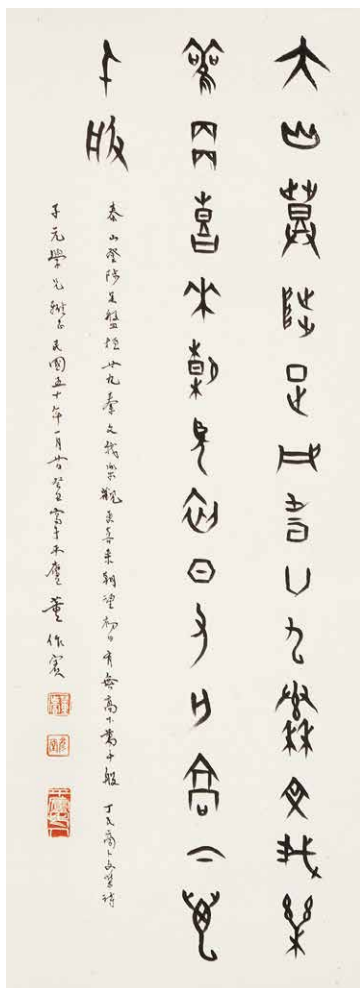 泰山登陟足盤桓廿九秦文我樂
觀更喜來朝望初日有無高下萬
千般
泰山登陟足盤桓廿九秦文我樂觀更喜来朝望初日有無高下萬千般 丁氏商卜文集詩
子元學兄 正民國五十年一月廿 癸丑寫于平廬 董作賓